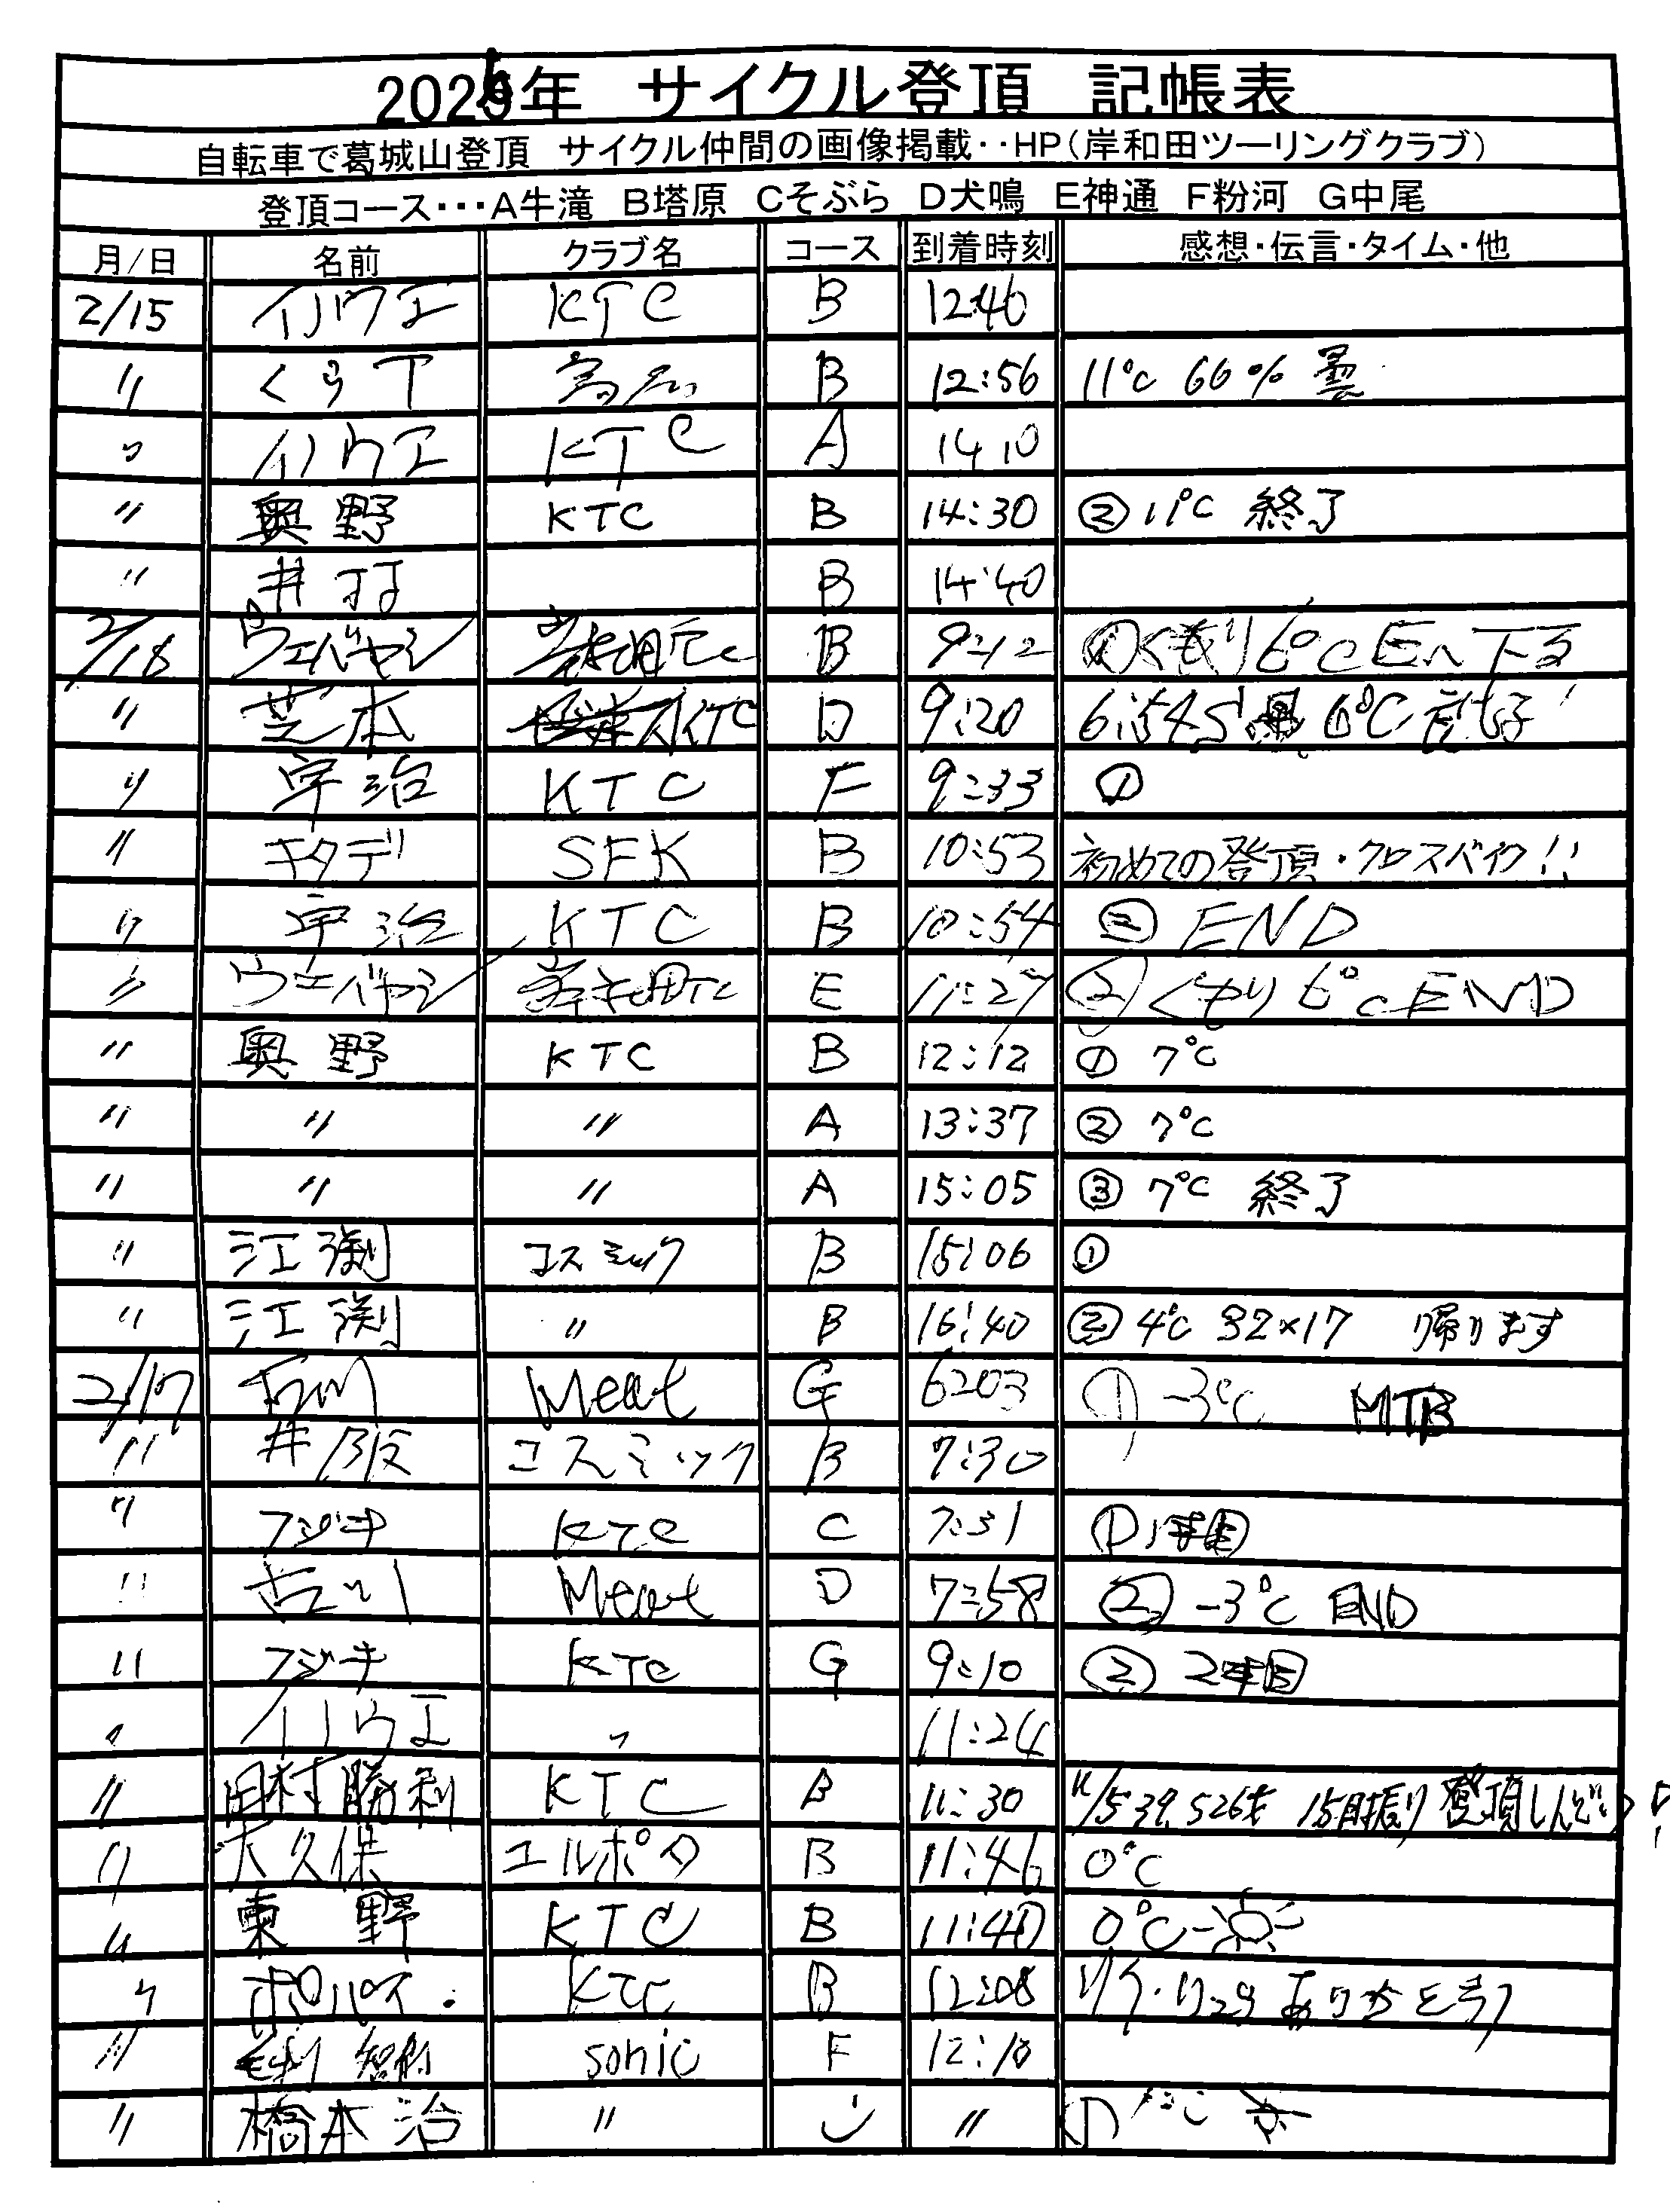 2026年 サイクル登頂 記帳表
自転車で葛城山登頂 サイクル仲間の画像掲載‥HP(岸和田ツーリングクラブ)
登頂コース・・・A牛滝 B塔原 Cそぶら D犬鳴 E神通 F粉河 G中尾
月/日 名前 クラブ名 コース 到着時刻 感想・伝言・タイム・他
2/15 イノウエ KTC B 12:46
〃 くらT B 12:56 11℃ 66% 曇
〃 イノウエ KTC A 14 10
〃 奥野 KTC B 14:30 ② 11℃ 終了
〃 井村 B 14:40
2/16 ウエバヤシ 岸和田TC B 9:12 ①くもり6℃Eへ下る
〃 芝本 KTC D 9:20 6:54S 6℃
〃 宇治 KTC F 9:33 ①
〃 キタデ SFK B 10:53 初めての登頂・クロスバイク!!
〃 宇治 KTC B 10:54 ② END
〃 ウエバヤシ 岸和田TC E 11:27 ②くもり 6℃ END
〃 奥野 KTC B 12:12 ① 7℃
〃 〃 〃 A 13:37 ② 7℃
〃 〃 〃 A 15:05 ③ 7℃ 終了
〃 江渕 コスミック B 15:06 ①
〃 江渕 〃 B 16:40 ② 4℃ 32×17 帰ります
2/17 古川 Meat G 6:03 ① -3℃ MTB
〃 井阪 コスミック B 7:30
〃 フジキ KTC C 7:51 ① 1本目
〃 古川 Meat D 7:58 ② -3℃ END
〃 フジキ KTC G 9:10 ② 2本目
〃 イノウエ 〃 11:24
〃 田村勝利 KTC B 11:30 15目振り 登頂しんどい
〃 大久保 エルポタ B 11:46 0℃
〃 東野 KTC B 11:40 0℃
〃 ポパイ. KTC B 12:08 ありがとう
〃 sonic F 12:10
〃 橋本治 〃 〃 ①